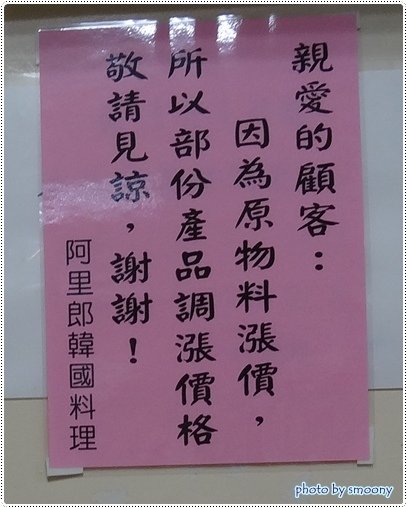 親愛的顧客：
因為原物料漲價，
所以部份產品調漲價格
敬請見諒，謝謝！
阿里郎韓國料理
photo by smoony